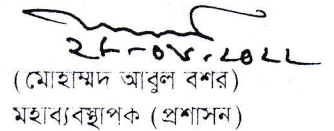 ২৮-০৮.২০২২
(মোহাম্মদ আবুল বশর)
মহাব্যবস্থাপক (প্রশাসন)